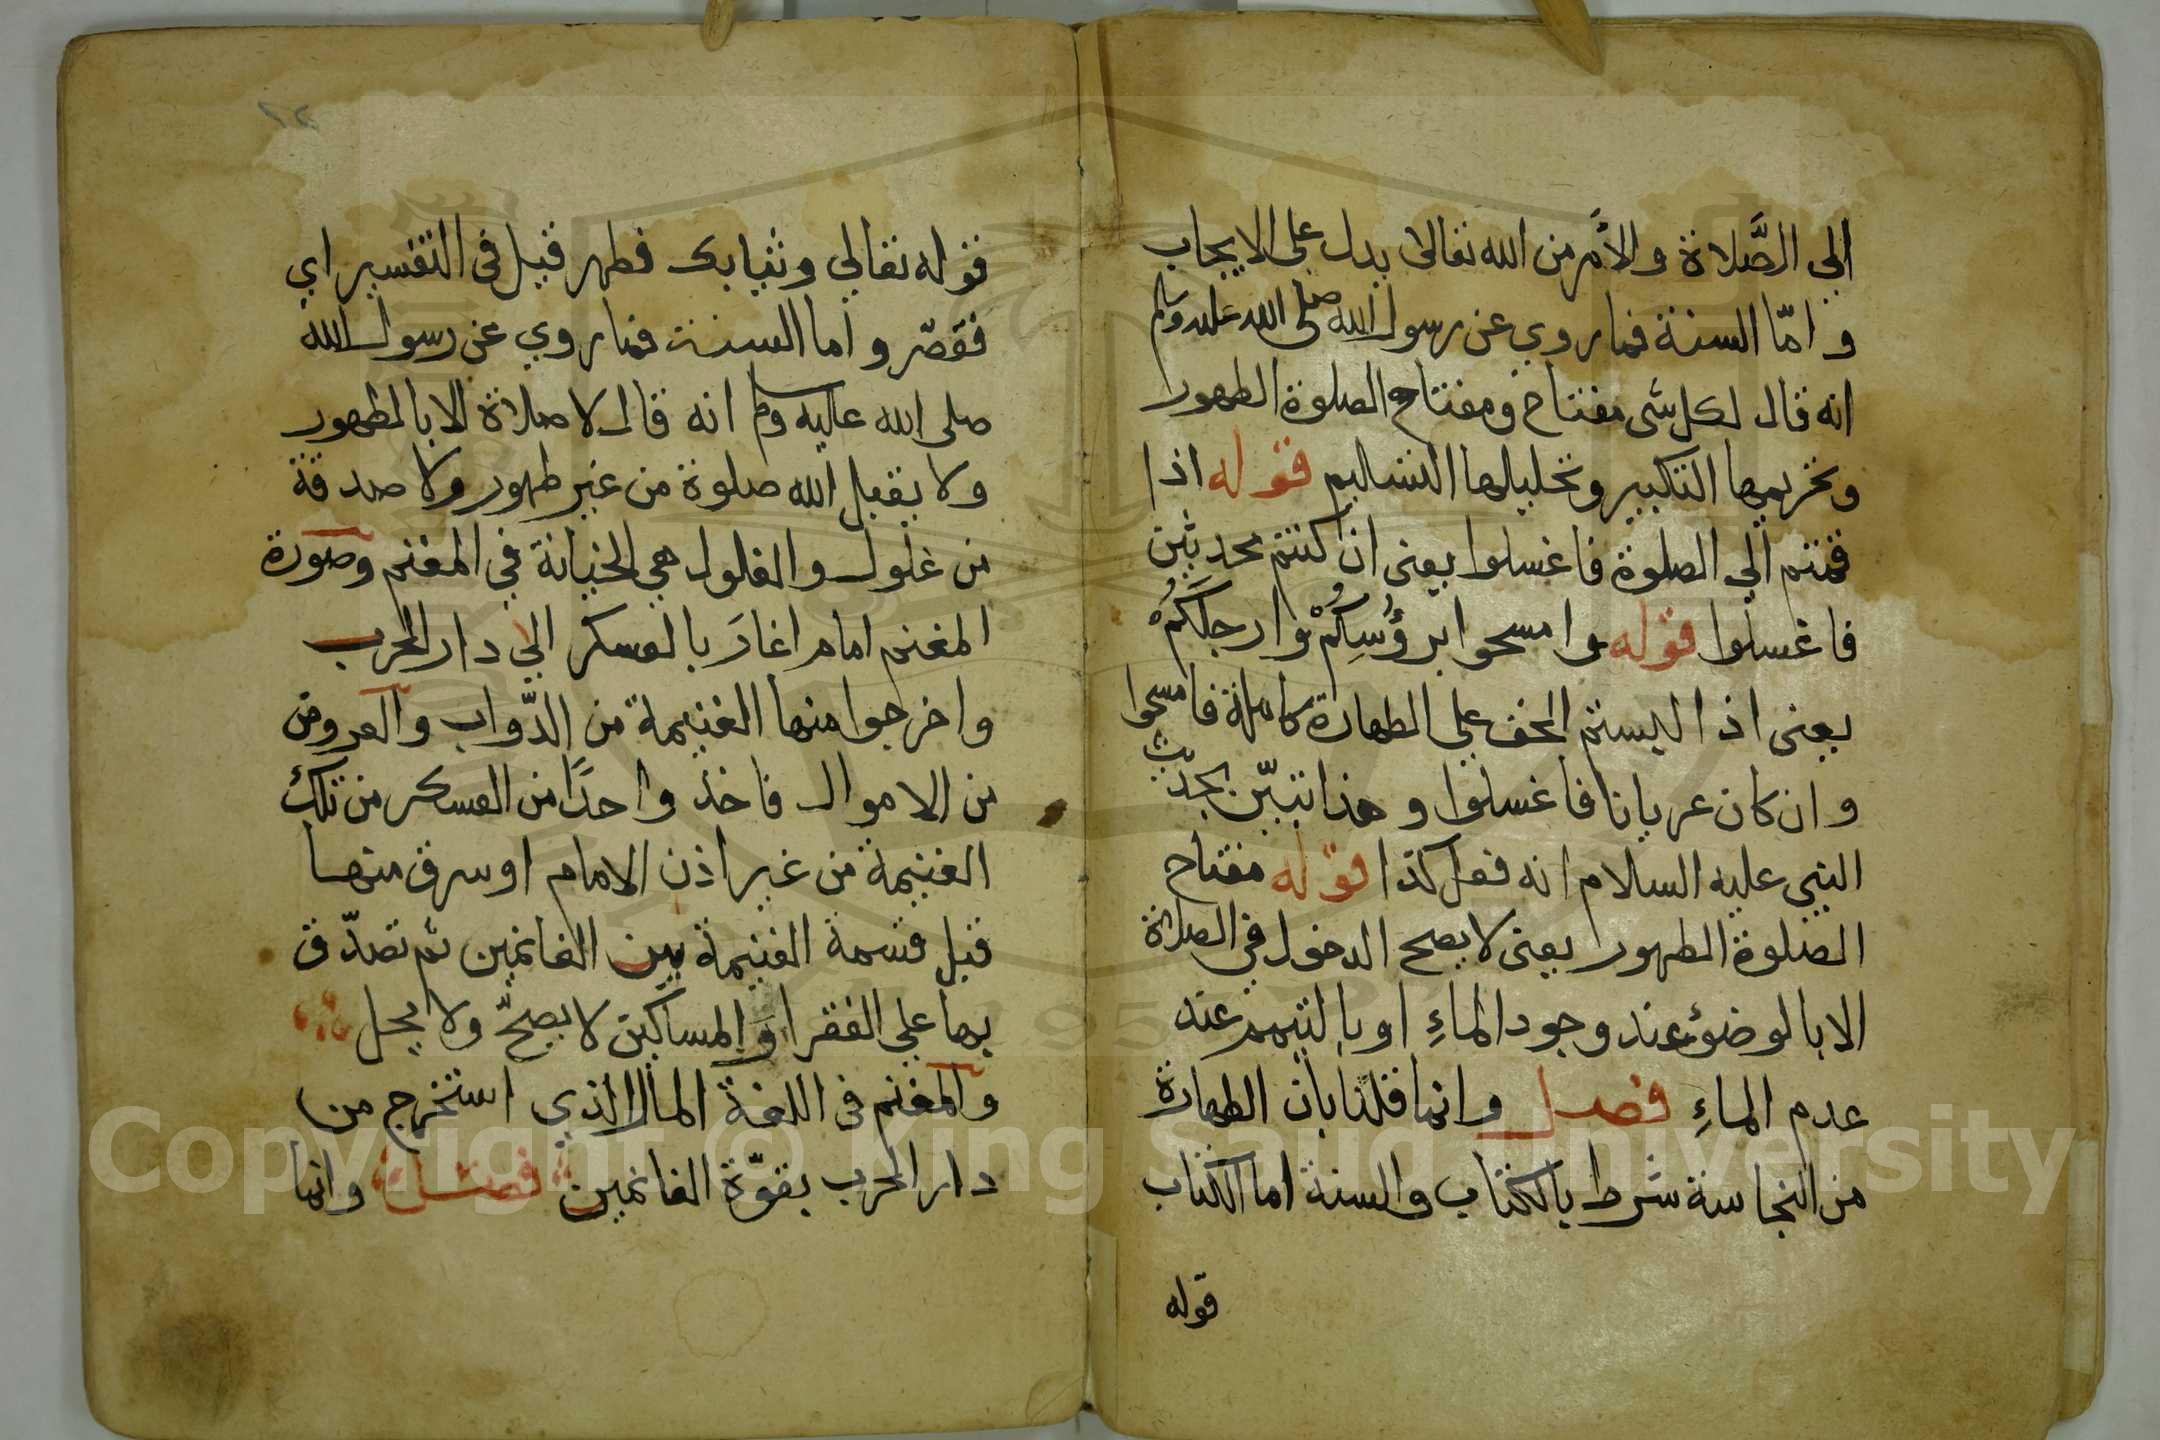 الي الصَّلاة والأمر من الله تعالى يدل على الايجاب
و امّا السنة فما روي عن رسول الله صلى الله عليه وسلم
انه قال لكل شى مفتاح ومفتاح الصلوة الطهور
وتحريمها التكبير وتحليلها التسليم قوله اذا
قمتم الي الصلوة فاغسلوا يعنى ان كنتم محدثين
فاغسلوا قوله وامسحوا برؤُسِكُمْ وارجلَكُمْ
يعنى اذا لبستم الخف على الطهارة كاملة فامسحوا
وان كان عريانا فاغسلوا وهذا تبيّن بحديث
النبي عليه السلام انه فعل كذا قوله مفتاح
الصلوة الطهور يعنى لا يصح الدخول في الصلاة
الا بالوضوء عند وجود الماءِ او بالتيمم عند
عدم الماءِ فصل وانما قلنا بان الطهارة
من النجاسة شرط بالكتاب والسنة اما الكتاب
قوله
١٢
قوله تعالي وثيابك فطهر قيل فى التفسير اي
فقصّر و اما السنة فما روي عن رسول الله
صلى الله عليه وسلم انه قال لا صلاة الا بالطهور
ولا يقبل الله صلوة من غير طهور ولا صدقة
من غلول والغلول هي الخيانة في المغنم وصورة
المغنم امام اغارَ بالعسكر الي دار الحرب
واخرجوا منها الغنيمة من الدّواب والعروض
من الاموال فاخذ واحدًا من العسكر من تلك
الغنيمة من غير اذن الامام او سرق منها
قبل قسمة الغنيمة بين الغانمين ثم تصدّق
بها على الفقرا وَالمساكين لا يصحّ ولا يحل
والمغنم فى اللغة المال الذي استخرج من
دار الحرب بقوّة الغانمين فصل وانما
Copyright © King Saud University
1957